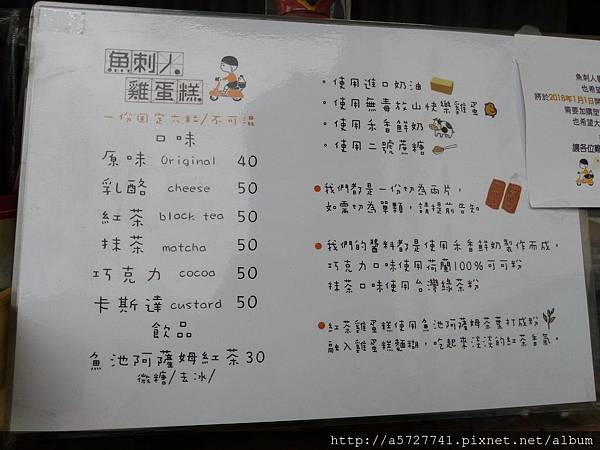 魚刺人
雞蛋糕
一份固定六粒/不可混
口味
原味 Original 40
乳酪 cheese 50
紅茶 black tea 50
抹茶 matcha 50
巧克力 cocoa 50
卡斯達 custard 50
飲品
魚池阿薩姆紅茶 30
微糖/去冰/
·使用進口奶油
·使用無毒放山快樂雞蛋
·使用禾香鮮奶
·使用二號蔗糖
●我們都是一份切為兩片，
如需切為單顆，請提前告知
●我們的醬料都是使用禾香鮮奶製作而成，
巧克力口味使用荷蘭100%可可粉
抹茶口味使用台灣綠茶粉
●紅茶雞蛋糕使用魚池阿薩姆茶葉打成粉
融入雞蛋糕麵糊，吃起來淡淡的紅茶香氣。
魚刺人
也希望
將於2018年1月1日開
需要加購塑
也希望大
讓各位顧
http://a5727741.pixnet.net/album